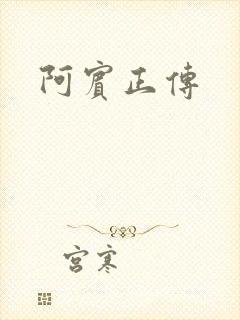 阿賓正傳
宮寒